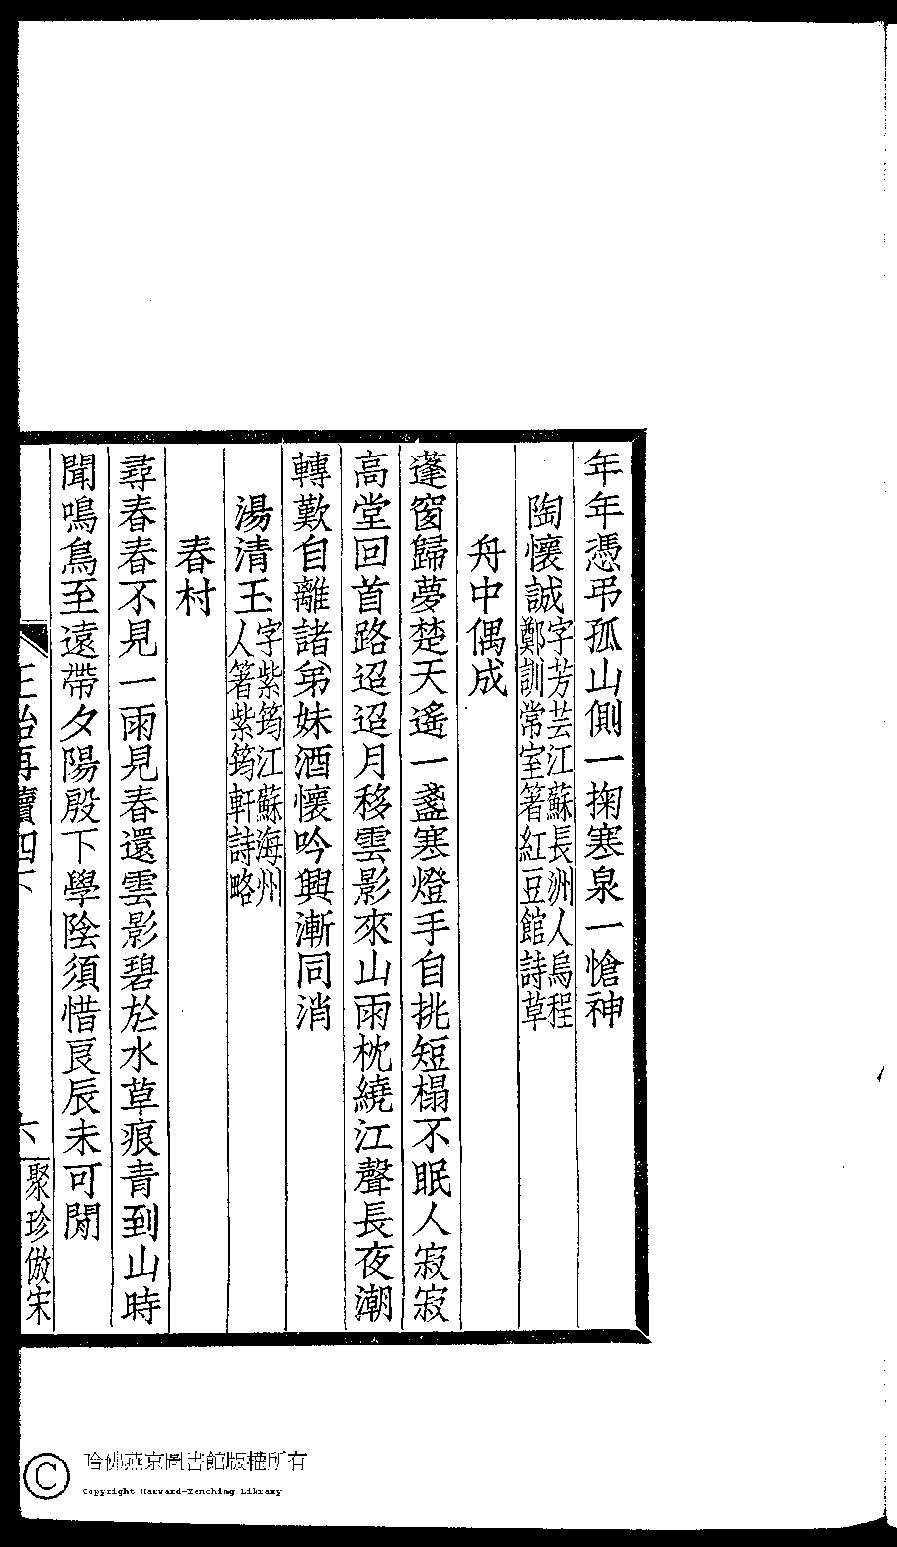 年年憑弔孤山側一掬寒泉一愴神
陶懷誠字芳芸江蘇長洲人烏程鄭訓常室箸紅豆館詩草
舟中偶成
蓬窗歸夢楚天遙一盞寒燈手自挑短榻不眠人寂寂
高堂回首路迢迢月移雲影來山雨枕繞江聲長夜潮
轉歎自離諸弟妹酒懷吟興漸同消
湯清玉字紫筠江蘇海州人箸紫筠軒詩略
春村
尋春春不見一雨見春還雲影碧於水草痕青到山時
聞鳴鳥至遠帶夕陽殷下學陰須惜良辰未可閒
再續四下
六
聚珍倣宋
哈佛燕京圖書館版權所有
Copyright Harvard-Yenching Library